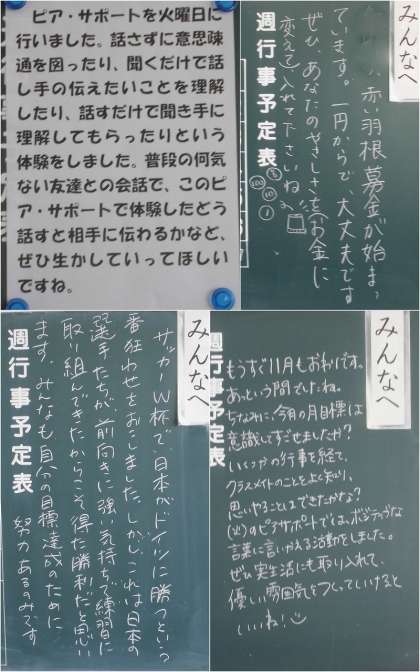 ピア・サポートを火曜日に
行いました。話さずに意思疎
通を図ったり、聞くだけで話
し手の伝えたいことを理解
したり、話すだけで聞き手に
理解してもらったりという
体験をしました。普段の何気
ない友達との会話で、このピ
ア・サポートで体験したどう
話すと相手に伝わるかなど、
ぜひ生かしていってほしい
ですね。
みんなへ
赤い羽根募金が始まっ
ています。一円からで、大丈夫です
ぜひ、あなたのやさしさをお金に
変えて入れて下さいね
週行事予定表
みんなへ
サッカーW杯で、日本がドイツに勝つという
番狂わせをおこしました。しかし、これは日本の
選手たちが、前向きに強い気持ちで練習に
取り組んできたからこそ得た勝利だと思い
ます。みんなも自分の目標達成のために、
努力あるのみです
週行事予定表
みんなへ
もうすぐ11月もおわりです。
あっという間でしたね。
ちなみに、今月の月目標は
意識してすごせましたか?
いくつかの行事を経て、
クラスメイトのことをよく知り、
思いやることはできたかな?
(火)のピアサポートでは、ポジティブな
言葉に言いかえる活動をしました。
ぜひ実生活にも取り入れて、
優しい雰囲気をつくっていけると
いいね!
週行事予定表